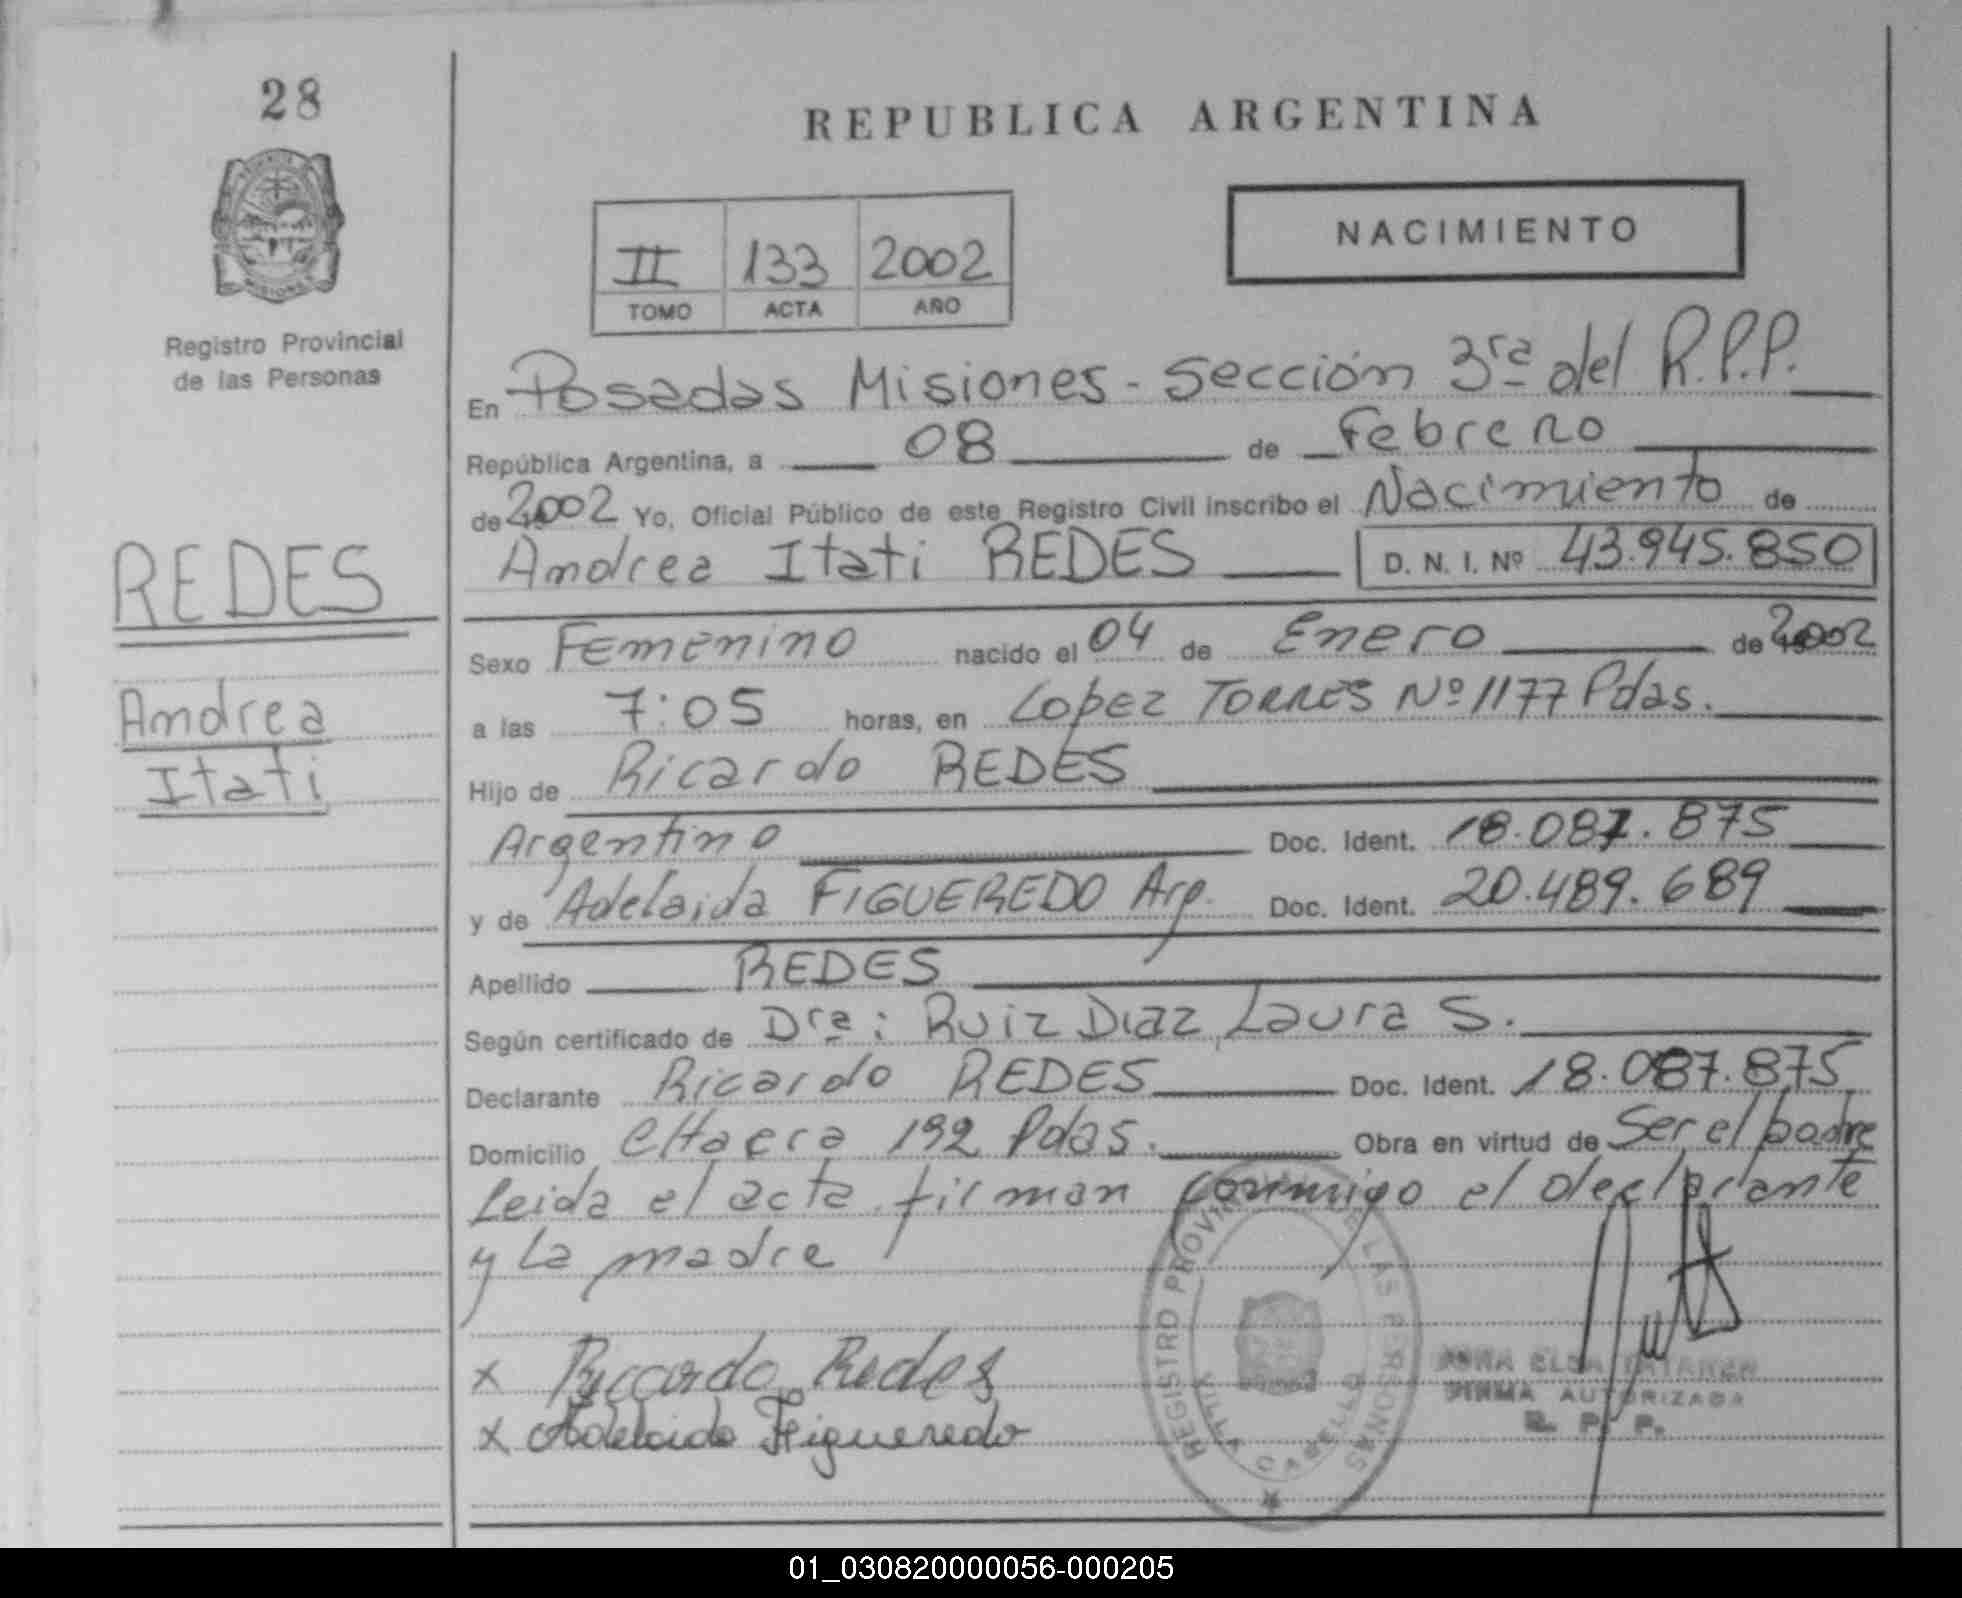 28
REPUBLICA ARGENTINA
NACIMIENTO
II 133 2002
TOMO ACTA AÑO
Registro Provincial
de las Personas
En Posadas Misiones - Sección 3ra del R.P.P.
República Argentina, a 08 de Febrero
de 2002 Yo, Oficial Público de este Registro Civil inscribo el Nacimiento de
Andrea Itati REDES D. N. I. Nº 43.945.850
REDES
Andrea
Itati
Sexo Femenino nacido el 04 de Enero de 2002
a las 7:05 horas, en Lopez TORRES Nº 1177 Pdas.
Hijo de Ricardo REDES
Argentino Doc. Ident. 18.087.875
y de Adelaida FIGUEREDO Arg. Doc. Ident. 20.489.689
Apellido REDES
Según certificado de Dra: Ruiz Diaz, Laura S.
Declarante Ricardo REDES Doc. Ident. 18.087.875
Domicilio 192 Pdas. Obra en virtud de Ser el padre
Leida el acta firman conmigo el declarante
y La madre
x Riccardo Redes
x Adelaida Figueredo
REGISTRO PROVINCIAL DE LAS PERSONAS
VILLA CABELLO
FIRMA AUTORIZADA
R. P. P.
01_030820000056-000205